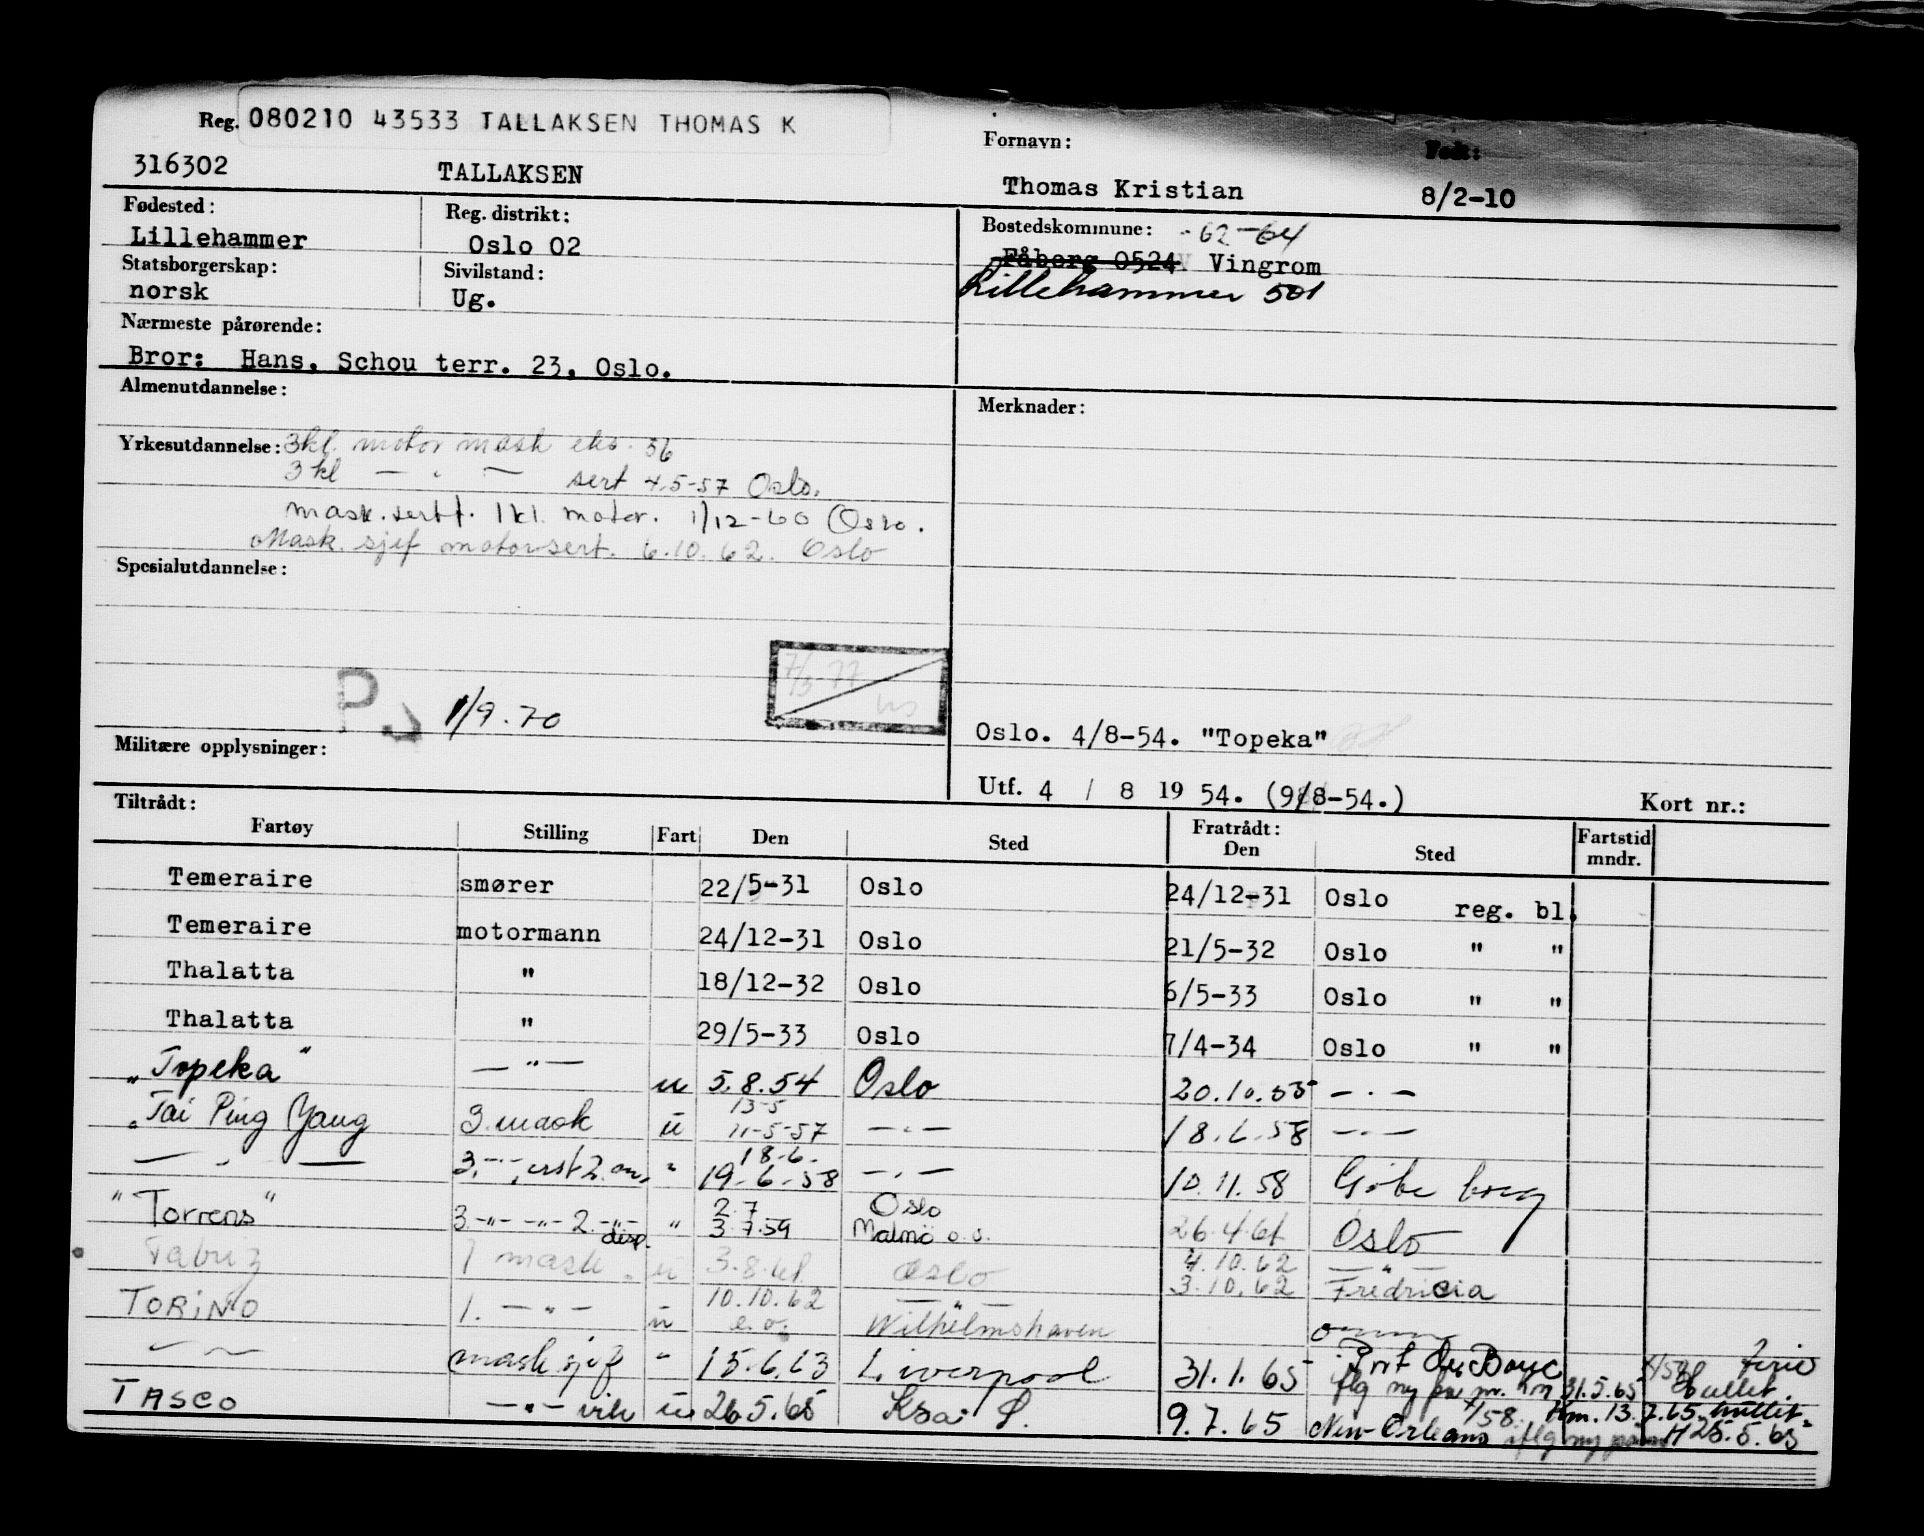 Reg. 080210 43533 TALLAKSEN THOMAS K
316302 TALLAKSEN
Fornavn:
Thomas Kristian
Født:
8/2-10
Fødested:
Lillehammer
Reg. distrikt:
Oslo 02
Bostedskommune: -62-64
Fåberg 0524 Vingrom
Lillehammer 501
Statsborgerskap:
norsk
Sivilstand:
Ug.
Nærmeste pårørende:
Bror: Hans, Schou terr. 23, Oslo.
Almenutdannelse:
Merknader:
Yrkesutdannelse: 3kl. motor mask eks. 56
3 kl — " — sert 4.5-57 Oslo.
mask.sertf. 1 kl. motor. 1/12-60 Oslo.
Mask. sjef motorsert. 6.10.62. Oslo
Spesialutdannelse:
P. 1/9.70
7/3-77
Oslo. 4/8-54. "Topeka"
Militære opplysninger:
Utf. 4 / 8 19 54. (9/8-54.)
Kort nr.:
Tiltrådt:
Fartøy Stilling Fart Den Sted Fratrådt: Den Sted Fartstid mndr.
Temeraire smører 22/5-31 Oslo 24/12-31 Oslo reg. bl.
Temeraire motormann 24/12-31 Oslo 21/5-32 Oslo " "
Thalatta " 18/12-32 Oslo 6/5-33 Oslo " "
Thalatta " 29/5-33 Oslo 7/4-34 Oslo " "
"Topeka" — " — u 5.8.54 Oslo 20.10.55 — . —
13-5
"Tai Ping Yang 3. mask u 11-5-57 — " — 18.6.58 — " —
18.6.
— " — 3. — " — 2. " 19-6-58 — " — 10.11.58 Gøteborg
2.7 Oslo
"Torrens" 3. — " — " — 2 — " — disp. " 3.7.59 Malmö 26.4.61 Oslo
4.10.62 — " —
Tabriz 1 mask. u 3.8.61 Oslo 3.10.62 Fredricia
10.10.62 — " —
TORINO 1. — " — u Wilhelmshaven
— " — mask sjef " 15.6.63 Liverpool 31.1.65 Port de Bouc
31.5.65
TASCO — " — vik u 26.5.65 9.7.65 New-Orleans
7/58. Hm. 13.7.65